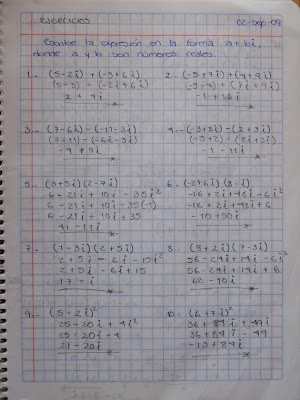 EJERCICIOS 02-Sep-09
Escribe la expresión en la forma a+bi,
donde a y b son números reales.
1.- (5-2i)+(-3+6i)
(5-3)+(-2i+6i)
2+4i
2.- (-5+7i)+(4+9i)
(-5+4)+(7i+9i)
-1+16i
3.- (7-6i)-(-11-3i)
(7-11)-(-6i-3i)
-4+9i
4.- (-3+8i)-(2+3i)
(-3+2)-(8i+3i)
-1-11i
5.- (3+5i)(2-7i)
6-21i+10i-35i²
6-21i+10i-35(-1)
6-21i+10i+35
41-11i
6.- (-2+6i)(8-i)
-16+2i+48i-6i²
-16+2i+48i+6
-10+50i
7.- (1-3i)(2+5i)
2+5i-6i-15i²
2+5i-6i+15
17-i
8.- (8+2i)(7-3i)
56-24i+14i-6i²
56-24i+14i+6
62-10i
9.- (5-2i)²
25-20i+4i²
25-20i-4
21-20i
10.- (6+7i)²
36+84i+49i
36+84i-49
-13+84i